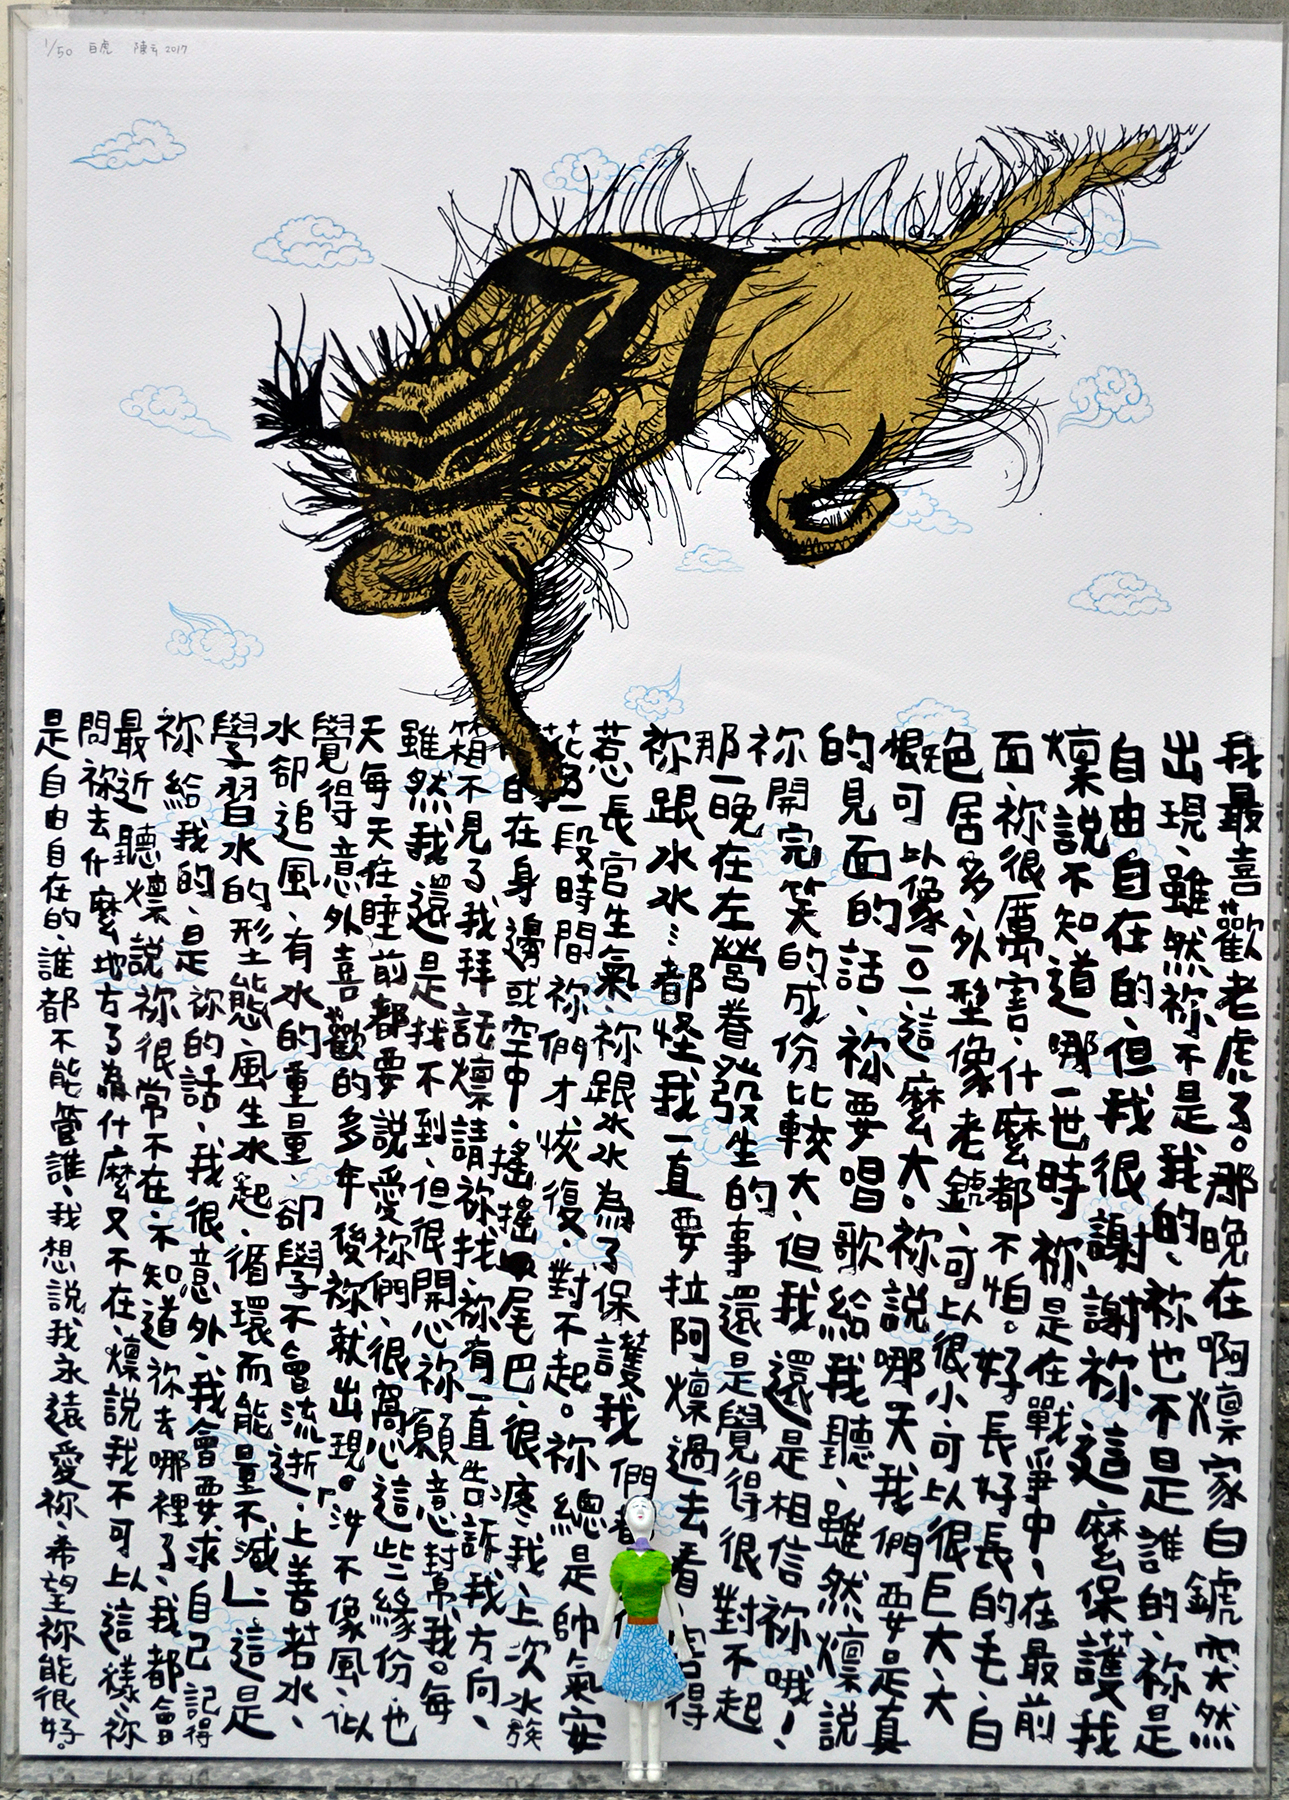 1/50 白虎 陳云 2017
我最喜歡老虎了。那晚在啊凜家白鯱突然
出現、雖然祢不是我的、祢也不是誰的、祢是
自由自在的、但我很謝謝祢這麼保護我
凜說不知道哪一世時祢是在戰爭中、在最前
面、祢很厲害、什麼都不怕。好長好長的毛、白
色居多、外型像老鯱、可以很小可以很巨大、大
概可以像一〇一這麼大。祢說哪天我們要是真
的見面的話、祢要唱歌給我聽、雖然凜說
祢開完笑的成份比較大、但我還是相信祢哦!
那一晚在左營眷發生的事還是覺得很對不起
祢跟水水…都怪我一直要拉阿凜過去看 害得
惹長官生氣、祢跟水水為了保護我們
花 一段時間祢們才恢復、對不起。祢總是帥氣安
自在身邊或空中、搖搖 尾巴、很疼我、上次水族
箱不見了我拜託凜請祢找、祢有一直告訴我方向、
雖然我還是找不到、但很開心祢願意幫我。每
天每天在睡前都要說愛祢們、很窩心這些緣份也
覺得意外喜歡的多年後祢就出現。「汐不像風、似
水卻追風、有水的重量、卻學不會流逝、上善若水、
學習水的形態、風生水起、循環而能量不減」這是
祢給我的、是祢的話、我很意外、我會要求自己記得
最近聽凜說祢很常不在、不知道祢去哪裡了、我都會
問祢去什麼地方了為什麼又不在、凜說我不可以這樣、祢
是自由自在的、誰都不能管誰、我想說、我永遠愛祢、希望祢能很好。